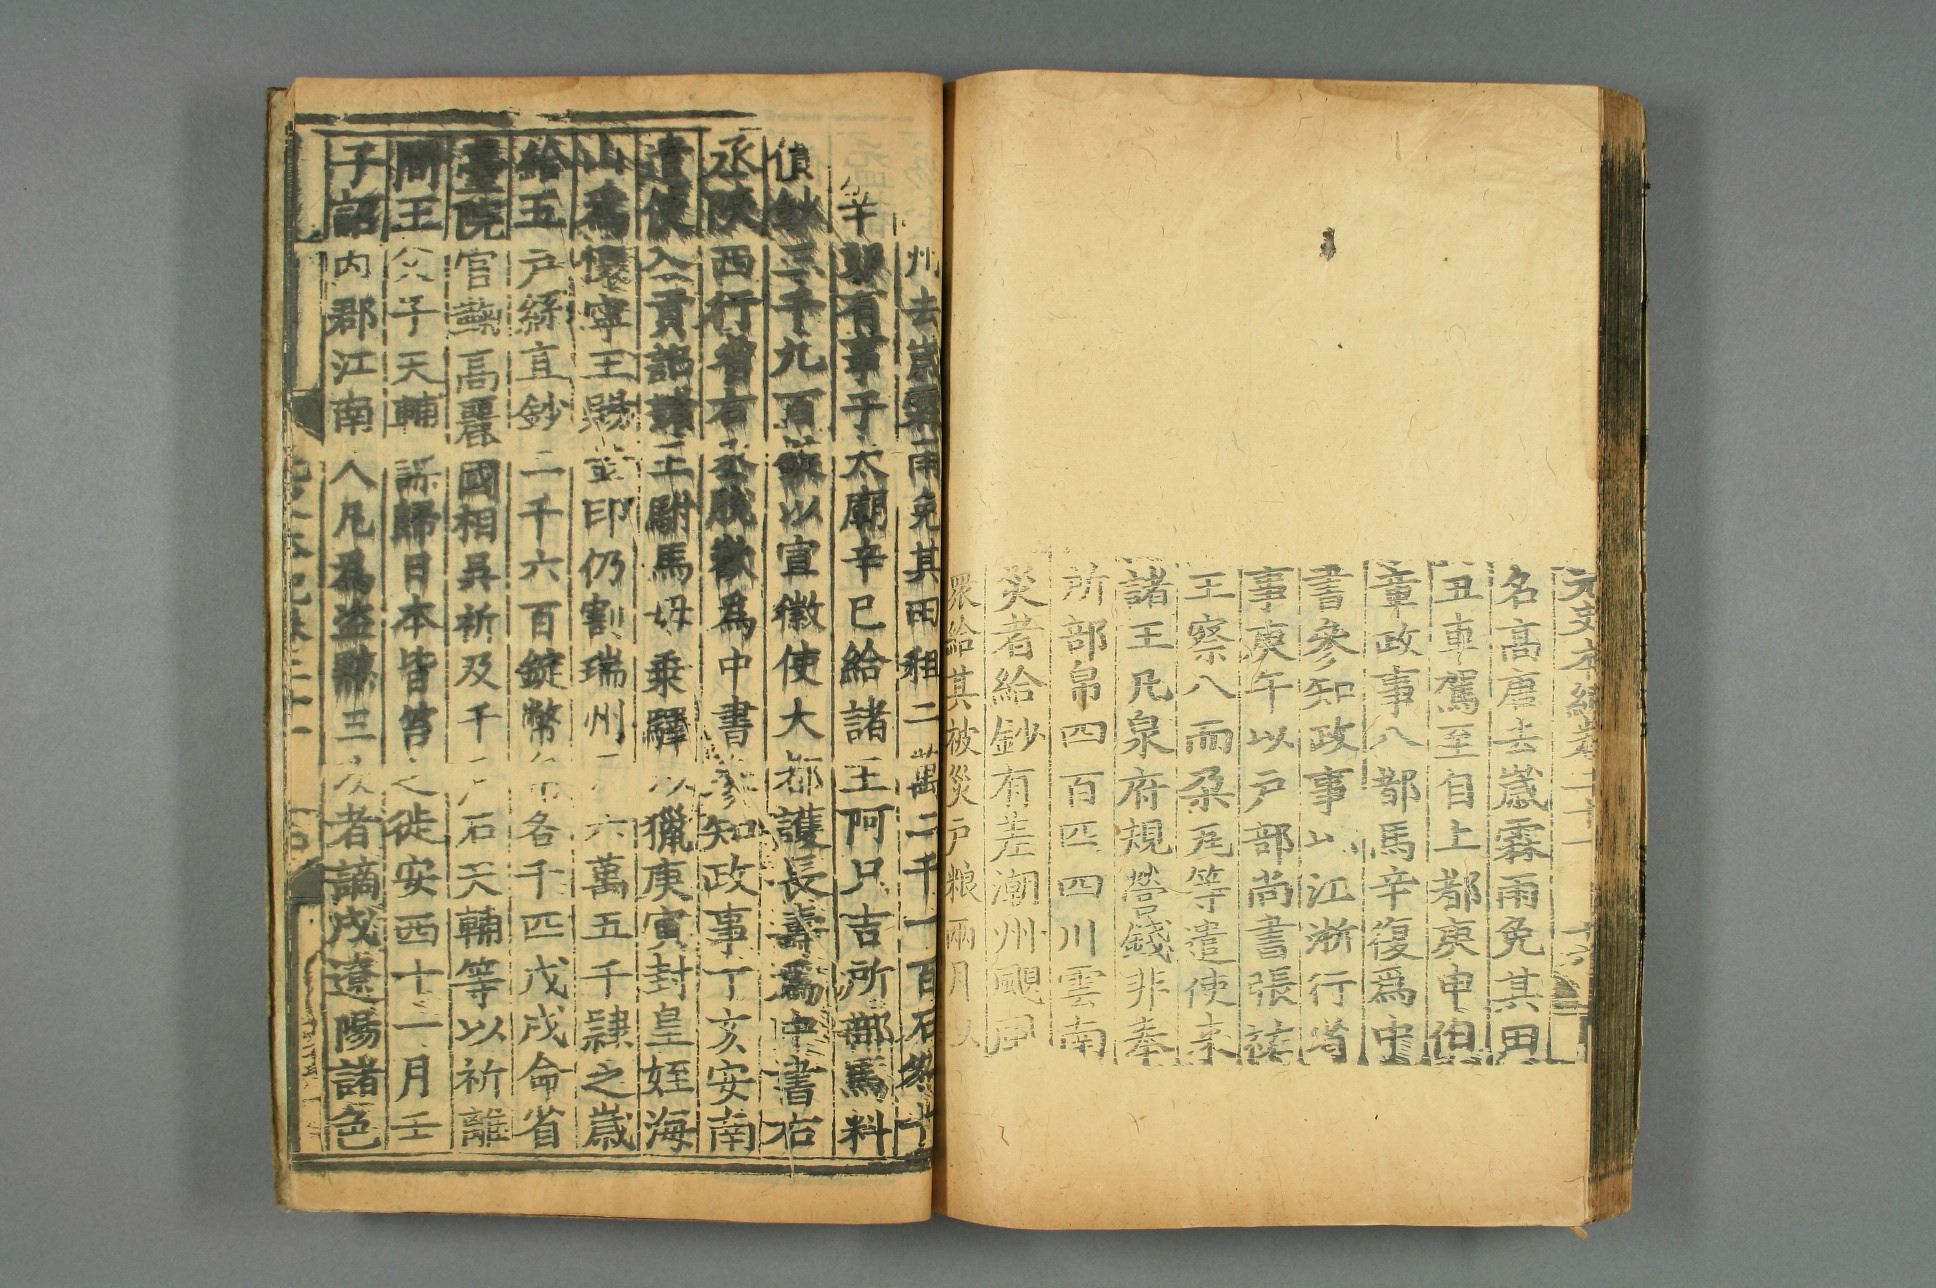 元史本紀卷二十一 十六
名高唐去歳霖雨免其田
丑車駕至自上都庚申伯
章政事八都馬辛復爲中
書參知政事以江浙行省
事庚午以戸部尚書張祐
王察八而朶瓦等遣使來
諸王凡泉府規營錢非奉
所部帛四百匹四川雲南
災者給鈔有差潮州颶
衆給其被災戸粮兩月以
州去歳霖雨免其田租二萬二千一百石冬十
辛卯有事于太廟辛巳給諸王阿只吉所部馬料
價鈔三千九百錠以宣徽使大都護長壽爲中書右
丞陜西行省右丞脱歡爲中書參知政事丁亥安南
遣使入貢詔諸王駙馬毋乗驛以獵庚寅封皇姪海
山爲懷寧王賜金印仍割瑞州六萬五千隷之歳
給五戸絲直鈔二千六百錠幣帛各千匹戊戌命省
臺院官鞫高麗國相呉祈及千戸石天輔等以祈離
間王父子天輔謀歸日本皆笞之徙安西十一月壬
子詔内郡江南人凡爲盗黥三次者謫戍遼陽諸色